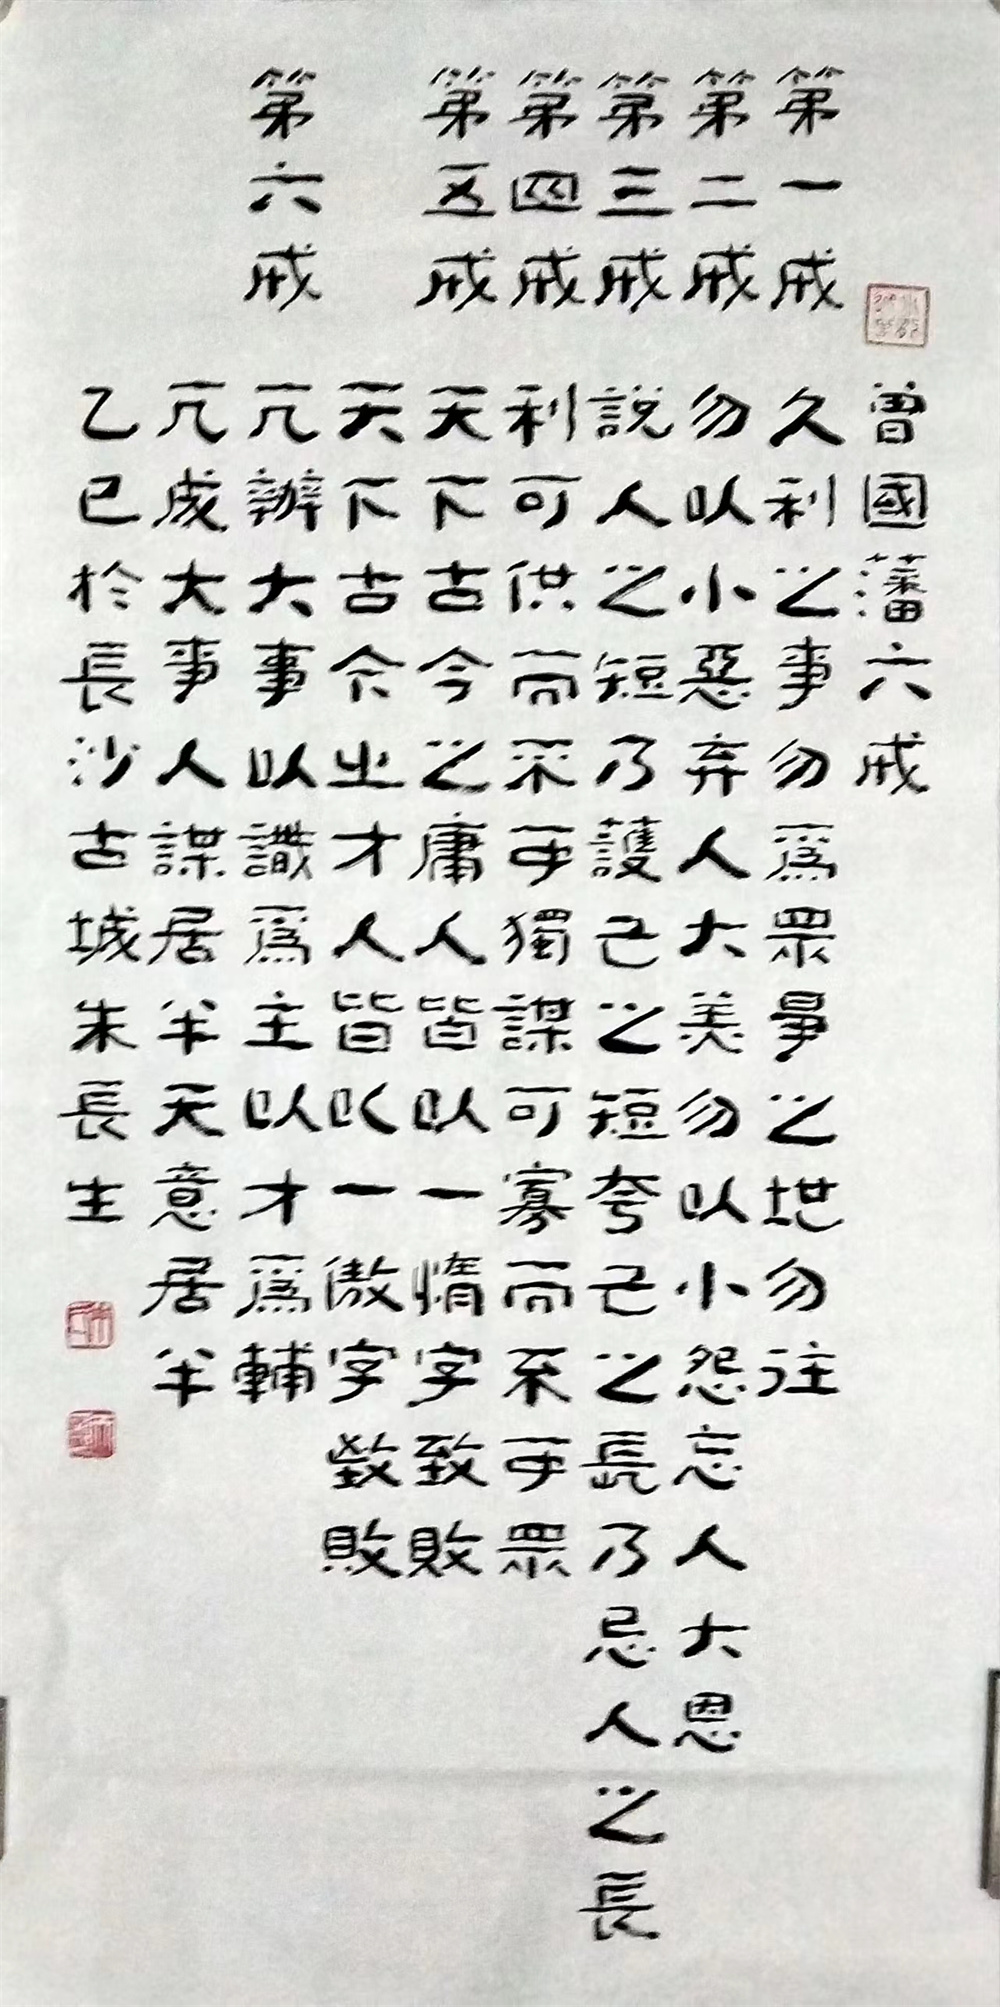 曾國藩六戒
第一戒 久利之事勿爲眾爭之地勿往
第二戒 勿以小惡弃人大美勿以小怨忘人大恩
第三戒 說人之短乃護己之短夸己之長乃忌人之長
第四戒 利可供而不可獨謀可寡而不可眾
第五戒 天下古今之庸人皆以一惰字致敗
天下古今之才人皆以一傲字致敗
第六戒 凡辦大事以識爲主以才爲輔
凡成大事人謀居半天意居半
乙巳於長沙古城朱長生